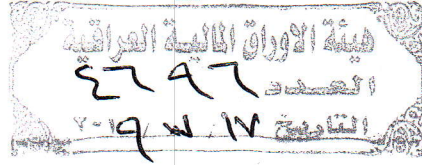 هيئة الاوراق المالية العراقية
العدد ٤٦٩٦
التاريخ ١٧ / ٣ / ٢٠١٩